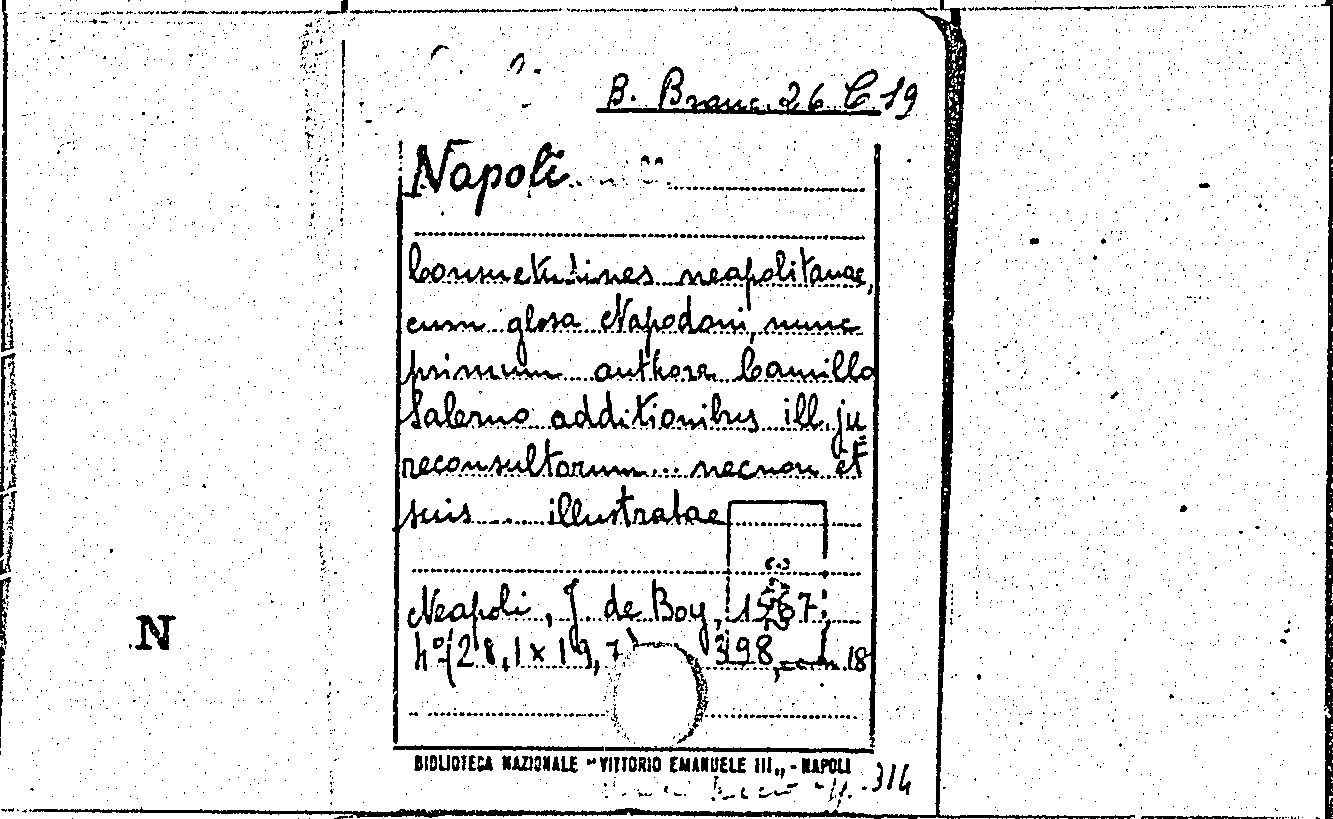 B. Branc. 26 C 19
Napoli
Consuetudines neapolitanae,
cum glosa Napodani, nunc
primum authore Camillo
Salerno additionibus ill. ju
reconsultorum... necnon et
suis ... illustratae
Neapoli, J. de Boy, 1567.
4° (28,1 x 19,7) 398, 18
BIBLIOTECA NAZIONALE "VITTORIO EMANUELE III„ - NAPOLI
314
N